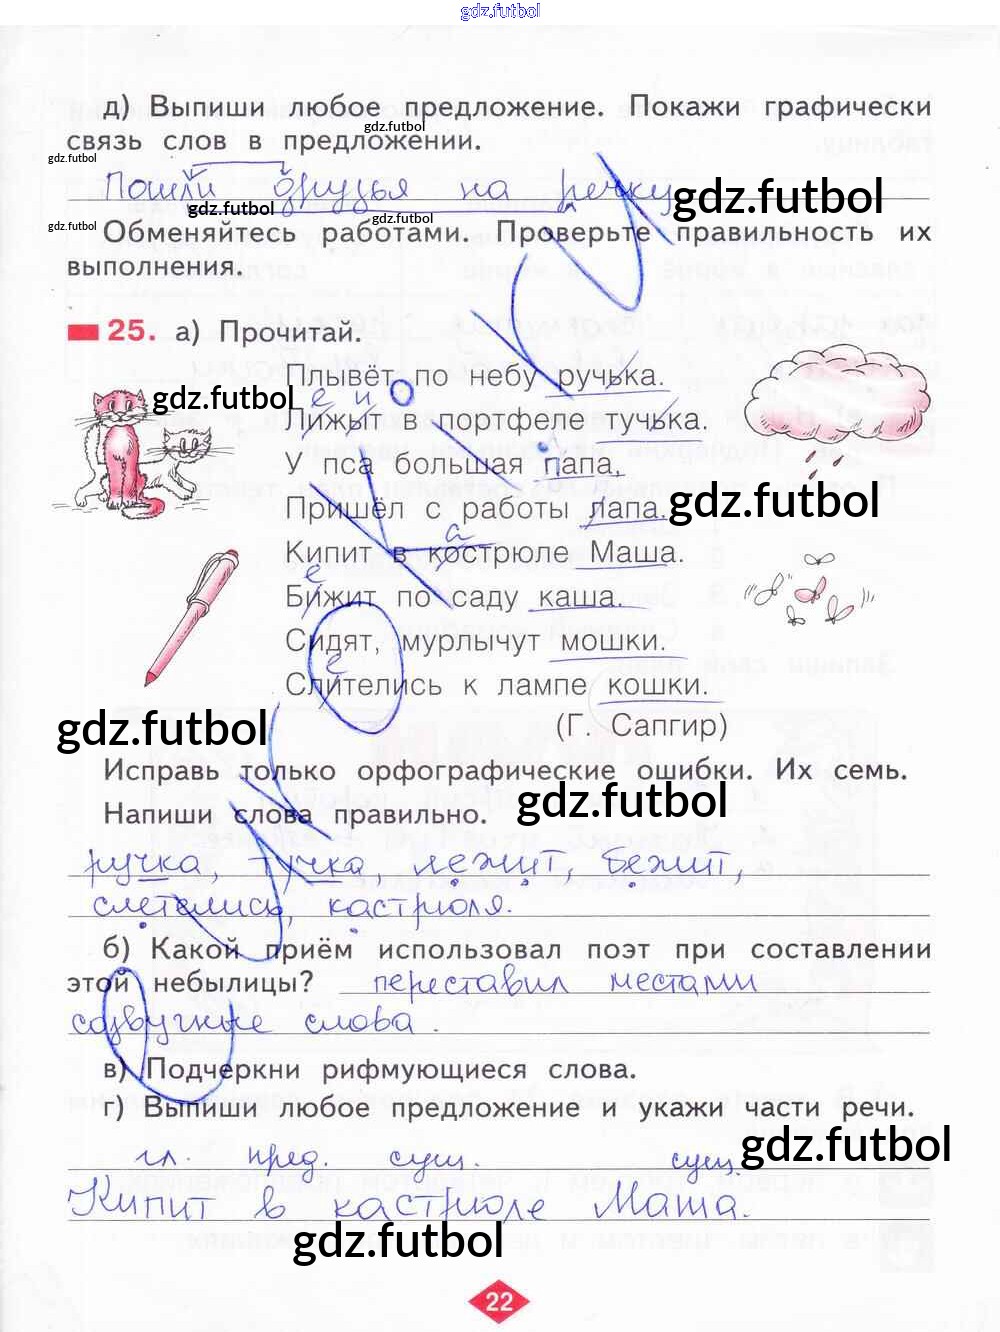 gdz.futbol
д) Выпиши любое предложение. Покажи графически
gdz.futbol
связь слов в предложении.
gdz.futbol
Пошли друзья на речку
gdz.futbol
gdz.futbol
gdz.futbol
Обменяйтесь работами. Проверьте правильность их
выполнения.
25. а) Прочитай.
Плывёт по небу ручька.
gdz.futbol
е и
Лижыт в портфеле тучька.
У пса большая папа.
Пришёл с работы лапа.
gdz.futbol
а
Кипит в кострюле Маша.
е
Бижит по саду каша.
Сидят, мурлычут мошки.
е
Слителись к лампе кошки.
(Г. Сапгир)
gdz.futbol
Исправь только орфографические ошибки. Их семь.
gdz.futbol
Напиши слова правильно.
ручка, тучка, лежит, бежит,
слетелись, кастрюля.
б) Какой приём использовал поэт при составлении
этой небылицы? переставил местами
созвучные слова.
в) Подчеркни рифмующиеся слова.
г) Выпиши любое предложение и укажи части речи.
gdz.futbol
гл. пред. сущ. сущ.
Кипит в кастрюле Маша.
gdz.futbol
22